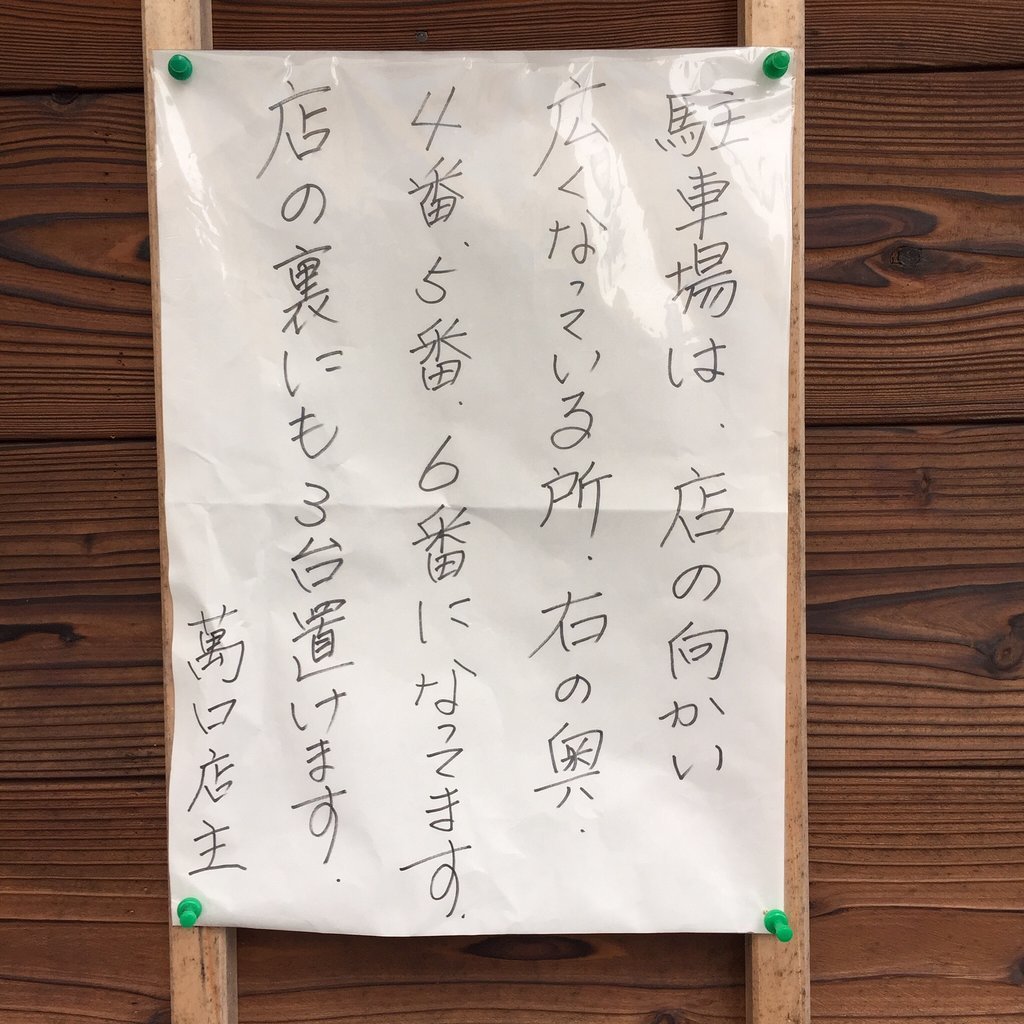 駐車場は.店の向かい
広くなっている所.右の奥.
4番.5番.6番になってます.
店の裏にも3台置けます.
萬口店主